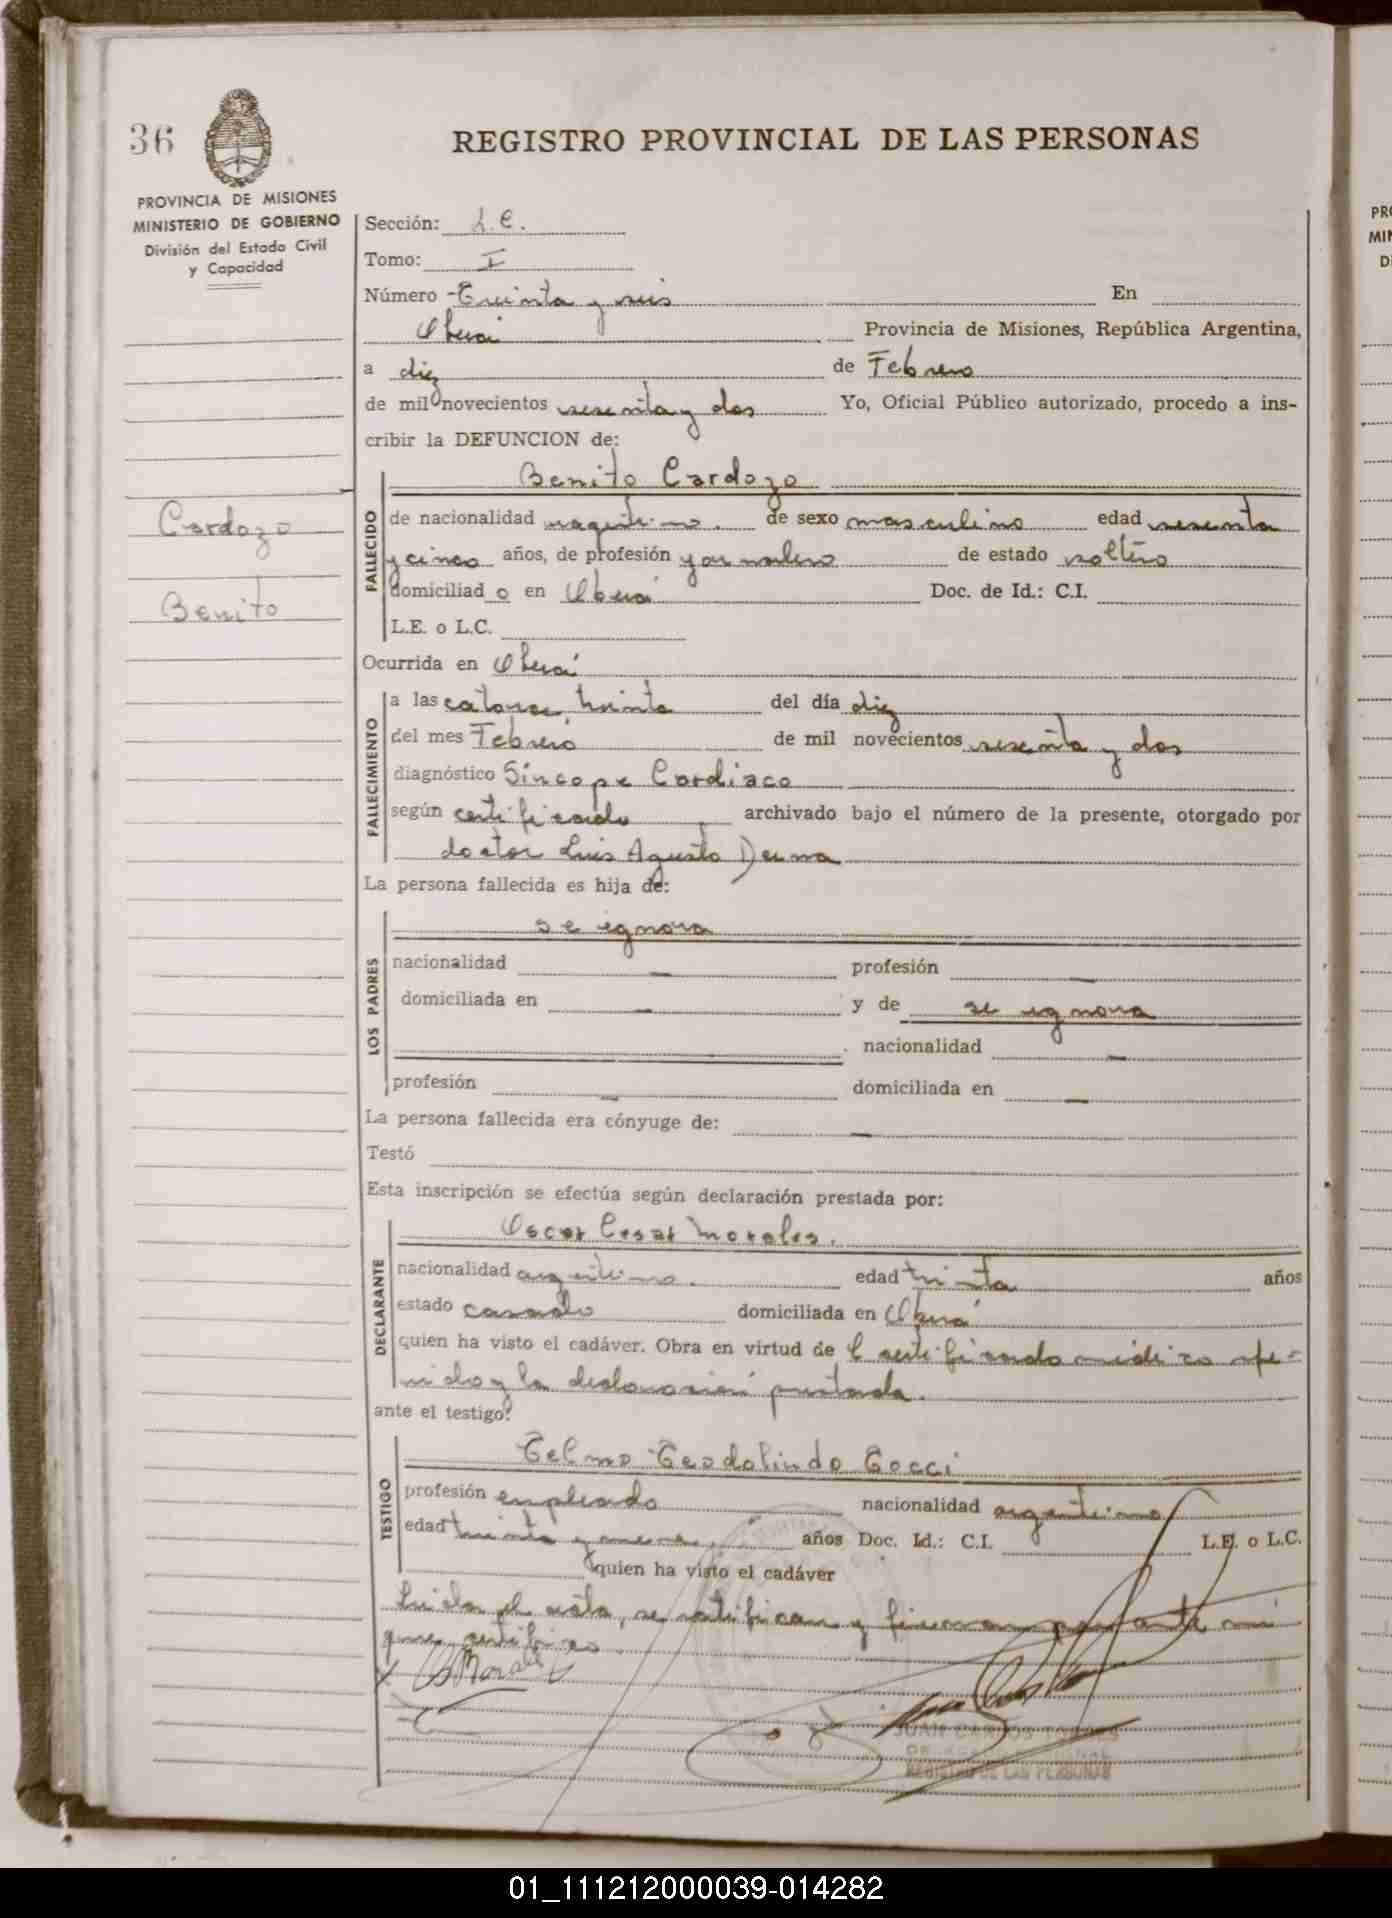 36
REGISTRO PROVINCIAL DE LAS PERSONAS
PROVINCIA DE MISIONES
MINISTERIO DE GOBIERNO
División del Estado Civil
y Capacidad
Sección: L.C.
Tomo: I
Número Treinta y seis En
Oberá Provincia de Misiones, República Argentina,
a diez de Febrero
de mil novecientos sesenta y dos Yo, Oficial Público autorizado, procedo a ins-
cribir la DEFUNCION de:
Benito Cardozo
Cardozo
Benito
FALLECIDO
de nacionalidad argentino. de sexo masculino edad sesenta
y cinco años, de profesión jornalero de estado soltero
domiciliad o en Oberá Doc. de Id.: C.I.
L.E. o L.C.
Ocurrida en Oberá
FALLECIMIENTO
a las catorce, treinta del día diez
del mes Febrero de mil novecientos sesenta y dos
diagnóstico Síncope Cardiaco
según certificado archivado bajo el número de la presente, otorgado por
doctor Luis Agusto
La persona fallecida es hija de:
se ignora
LOS PADRES
nacionalidad — profesión —
domiciliada en — y de se ignora
nacionalidad —
profesión — domiciliada en —
La persona fallecida era cónyuge de: —
Testó
Esta inscripción se efectúa según declaración prestada por:
Oscar Cesar Morales.
DECLARANTE
nacionalidad argentino. edad treinta años
estado casado domiciliada en Oberá
quien ha visto el cadáver. Obra en virtud de l certificado médico refe-
rido y la declaración prestada.
ante el testigo:
Telmo Teodolindo Tocci
TESTIGO
profesión empleado nacionalidad argentino
edad treinta y nueve. años Doc. Id.: C.I. L.E. o L.C.
quien ha visto el cadáver
Leida el acta, se ratifican y firman por ante mi
que certifico.
JUAN CARLOS TORRES
REGISTRO DE LAS PERSONAS
PRO
MIN
D
01_111212000039-014282